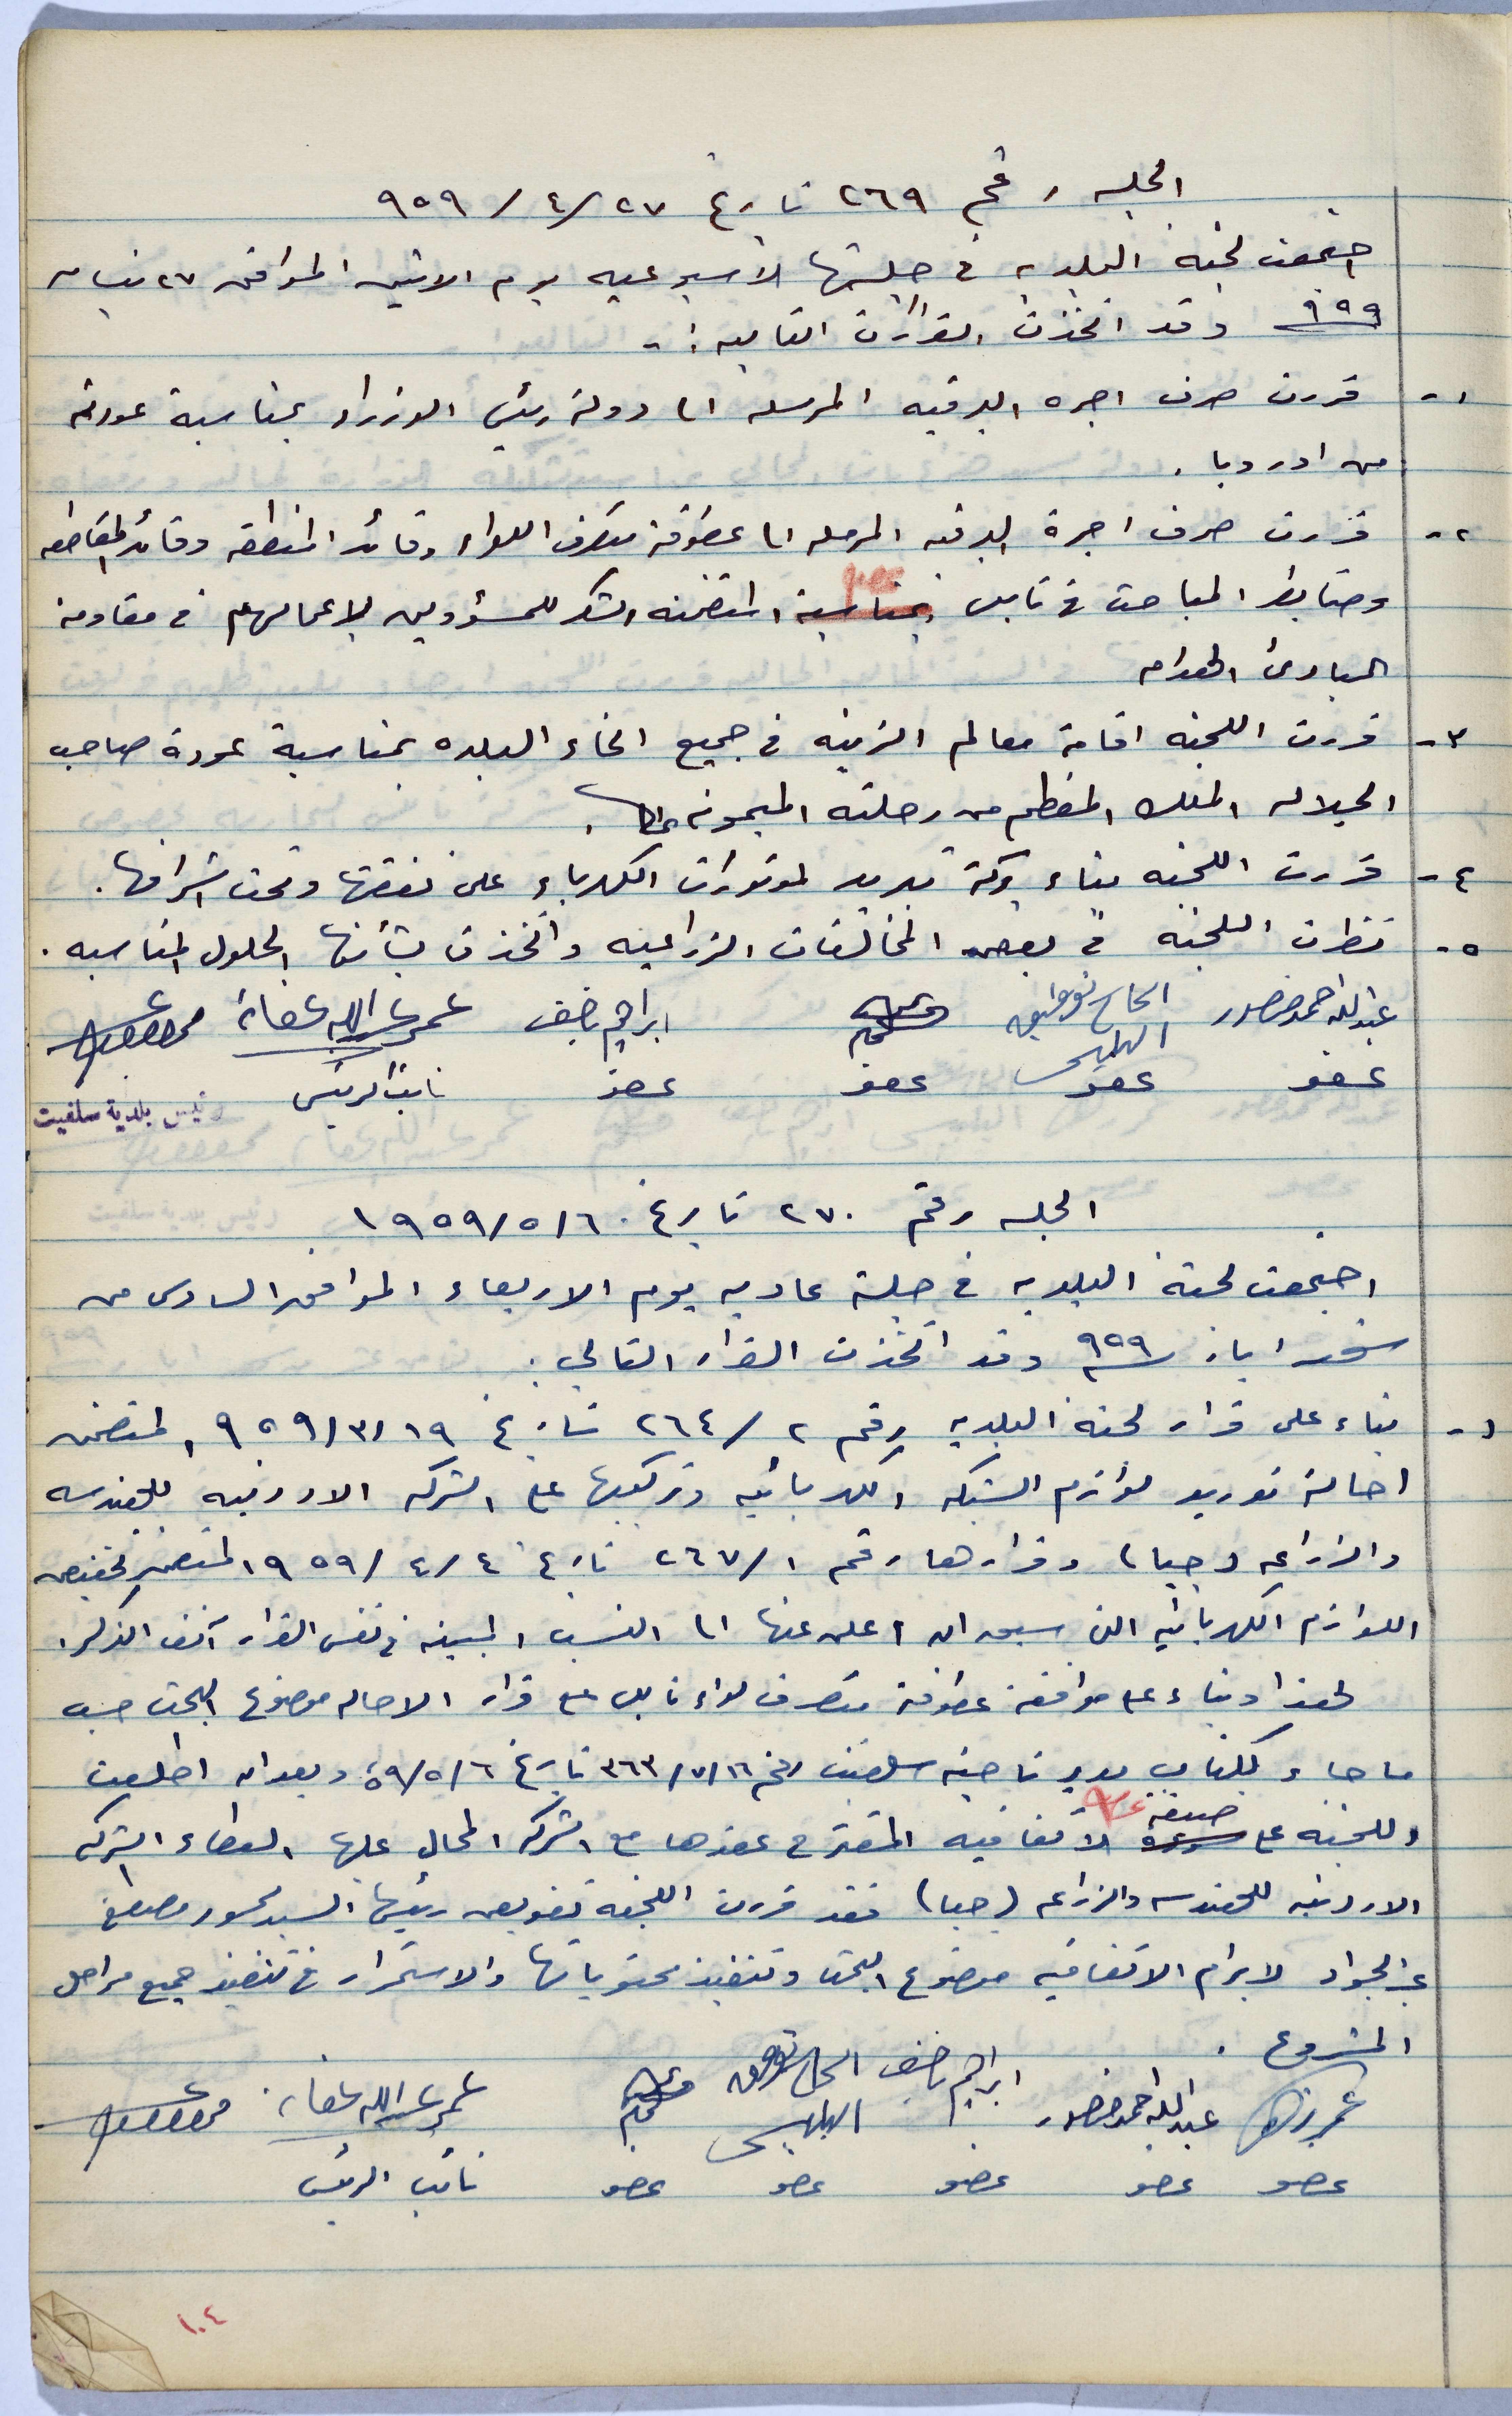 الجلسه رقم ٢٦٩ تاريخ ٢٧/٤/٩٥٩
اجتمعت لجنة البلديه في جلستها الأسبوعيه يوم الاثنين الموافق ٢٧ نيسان
٩٥٩ وقد اتخذت القرارات التاليه :-
١- قررت صرف اجره البرقيه المرسله الى دولة رئيس الوزراء بمناسبة عودته
من اوروبا .
٢- قررت صرف اجرة البرقيه المرسله الى عطوفة متصرف اللواء وقائد المنطقه وقائد المقاطعه
وضابط المباحث في نابلس بمناسبة المتضمنه الشكر للمسؤولين لاعمالهم في مقاومة
المبادئ الهدامه
٣- قررت اللجنه اقامة معالم الزينه في جميع انحاء البلده بمناسبة عودة صاحب
الجلاله الملك المعظم من رحلته الميمونه .
٤- قررت اللجنه بناء بركة تبريد لموتورات الكهرباء على نفقتها وتحت اشرافها .
٥- نظرت اللجنة في بعض المخالفات الزراعيه واتخذت بشأنها الحلول المناسبه .
عبدالله احمد منصور الحاج توفيق ابراهيم ناصيف عمر عبدالله عفانه
عضو عضو عضو عضو نائب الرئيس رئيس بلدية سلفيت
الجلسه رقم ٢٧٠ تاريخ ١٩٥٩/٥/٦
اجتمعت لجنة البلديه في جلسة عاديه يوم الاربعاء الموافق السادس من
شهر ايار سنة ٩٥٩ وقد اتخذت القرار التالي .
١- بناء على قرار لجنة البلديه رقم ٢/٢٦٤ تاريخ ٩٥٩/٣/١٩ المتضمن
احالة توريد لوازم الشبكه الكهربائيه وتركيبها على الشركه الاردنيه للهندسه
والزراعه (جبا) وقرارها رقم ٢٦٧/١ تاريخ ١٩٥٩/٤/٤ المتضمن تخفيض
اللوازم الكهربائيه التي سبق ان اعلن عنها الى النسب المبينه في نفس القرار آنف الذكر .
لهذا وبناء على موافقة عطوفة متصرف لواء نابلس على قرار الاحاله موضوع البحث حسب
ما جاء بكتاب مدير ناحية سلفيت رقم ٣٦٣/٧/١٦ تاريخ ٥٩/٥/٦ وبعد ان اطلعت
اللجنه على صيغة الاتفاقيه المقترح عقدها مع الشركه المحال عليها العطاء الشركه
الاردنيه للهندسه والزراعه (جبا) فقد قررت اللجنة تفويض رئيسها السيد محمود مصطفى
عبدالجواد لابرام الاتفاقيه موضوع البحث وتنفيذ محتوياتها والاستمرار في تنفيذ جميع مراحل
المشروع .
عبدالله احمد منصور ابراهيم ناصيف الحاج توفيق عمر عبدالله عفانه
عضو عضو عضو عضو عضو نائب الرئيس
١٠٤